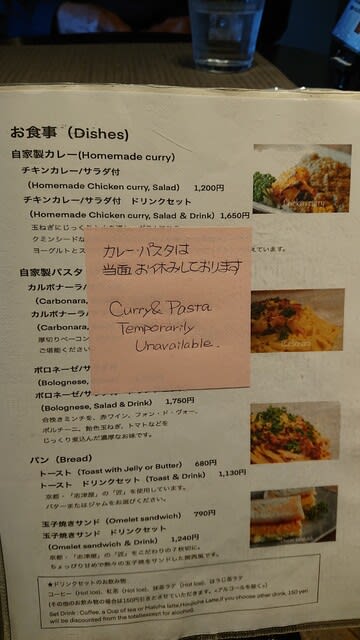 お食事 (Dishes)
自家製カレー(Homemade curry)
チキンカレー/サラダ付
(Homemade Chicken curry, Salad) 1,200円
チキンカレー/サラダ付 ドリンクセット
(Homemade Chicken curry, Salad & Drink) 1,650円
玉ねぎにじっく
クミンシードな
ヨーグルトとス
えています。
カレー・パスタは
当面お休みしております
Curry & Pasta
Temporarily
Unavailable.
自家製パスタ
カルボナーラ/
(Carbonara,
カルボナーラ/
(Carbonara,
厚切りベーコン
ご堪能ください
ボロネーゼ/サ
(Bolognese,
ボロネーゼ/サ
(Bolognese, Salad & Drink) 1,750円
合挽きミンチを、赤ワイン、フォン・ド・ヴォー、
ポルチーニ、飴色玉ねぎ、トマトなどを
じっくり煮込んだ濃厚なお味です。
パン (Bread)
トースト (Toast with Jelly or Butter) 680円
トースト ドリンクセット (Toast & Drink) 1,130円
京都・「志津屋」の「匠」を使用しています。
バターまたはジャムをお選びください。
玉子焼きサンド (Omelet sandwich) 790円
玉子焼きサンド ドリンクセット
(Omelet sandwich & Drink) 1,240円
京都・「志津屋」の「匠」をこだわりの7枚切りに。
ちょっぴり甘めで熱々の玉子焼きをサンドした関西風です。
★ドリンクセットのお飲み物
コーヒー (Hot/Ice)、紅茶 (Hot/Ice)、抹茶ラテ (Hot/Ice)、ほうじ茶ラテ
(その他のお飲み物の場合は150円引きとさせていただきます。*アルコールを除く*)
Set Drink : Coffee, a Cup of tea or Matcha latte, Houjicha Latte, If you choose other drink, 150 yen
will be discounted from the total(except for alcohol).